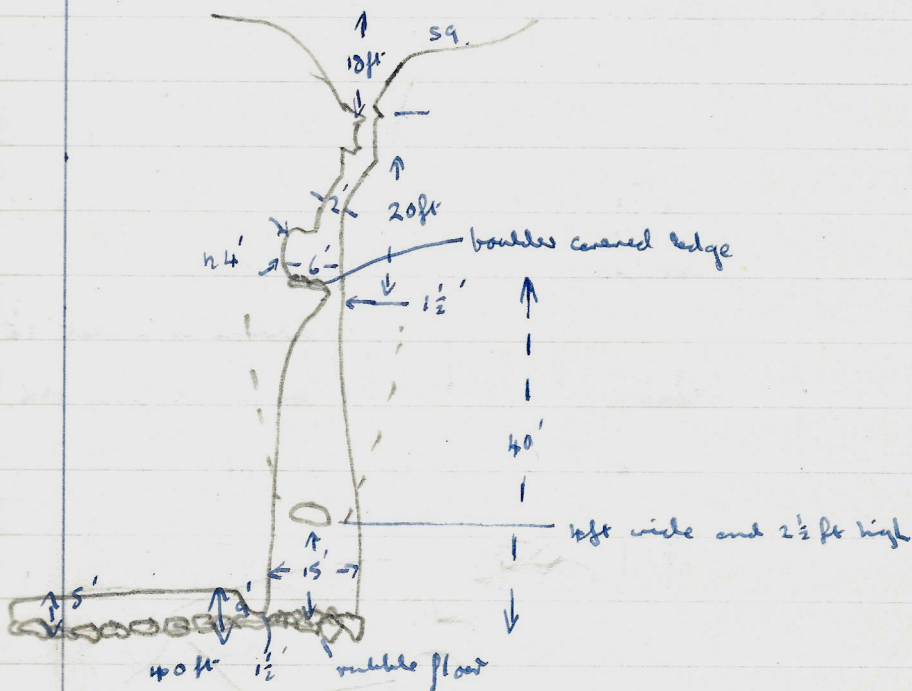 sq.
18ft
2'
20ft
boulder covered ledge
h 4'
6'
1½'
40'
4ft wide and 2½ ft high
15'
5'
9'
40ft
1½'
rubble floor